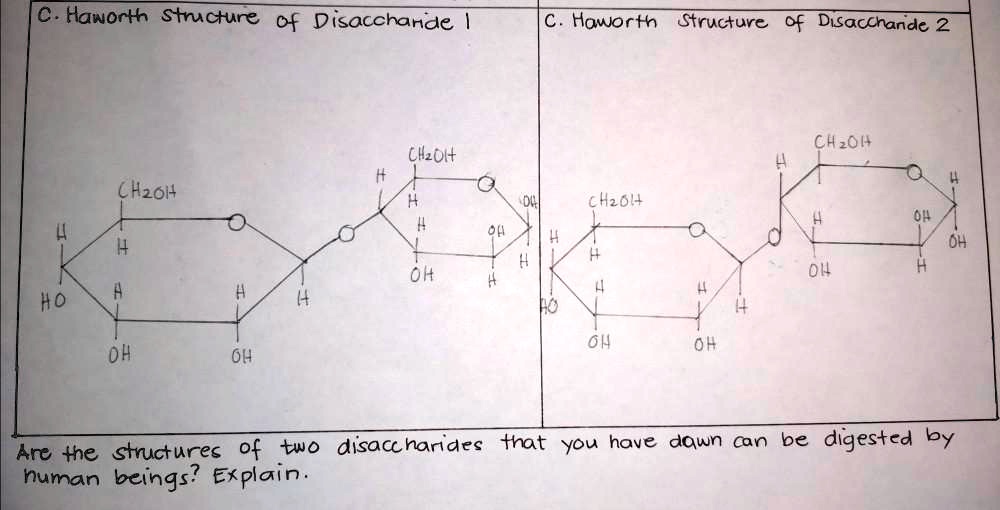 C. Haworth Structure of Disaccharide 1
C. Haworth Structure of Disaccharide 2
CH2OH
O
H
H
HO
H
OH
H
OH
H
O
CH2OH
O
H
H
H
OH
OH
H
OH
H
CH2OH
O
H
H
HO
H
OH
H
OH
H
O
CH2OH
O
H
H
OH
OH
H
H
OH
Are the structures of two disaccharides that you have dawn can be digested by
human beings? Explain.